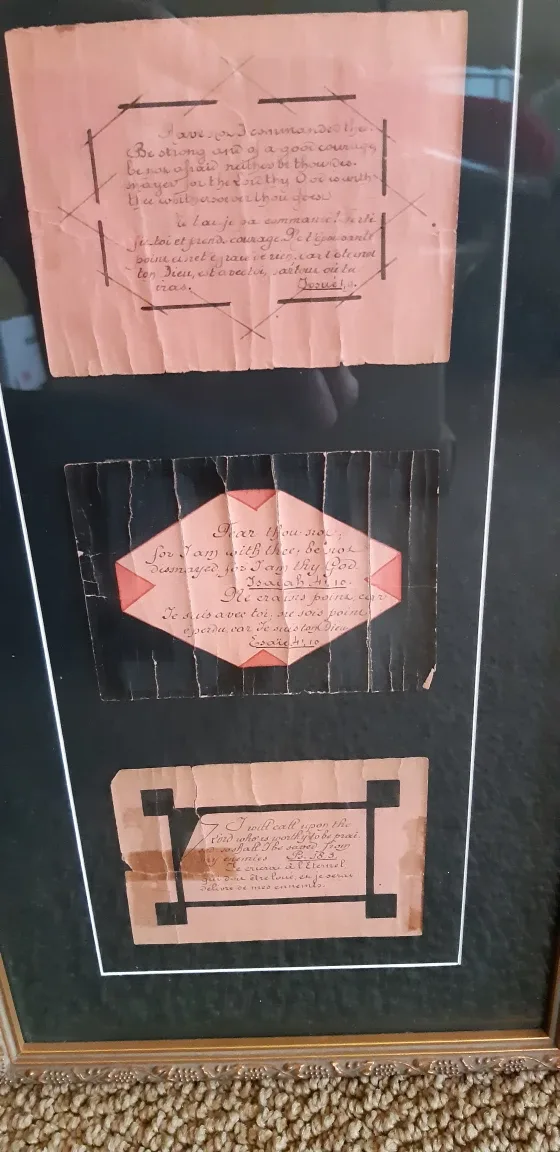 Have not I commanded thee.
Be strong and of a good courage,
be not afraid neither be thou dis-
mayed for the Lord thy God is with
thee whithersoever thou goest
je sa commandé?
toi et prend courage Ne
point et car l'éternel
ton Dieu, est avec toi, partout où tu
iras. Josué 1,9.
Fear thou not;
for I am with thee; be not
dismayed for I am thy God.
Isaiah 41,10.
Ne crains point, car
Je suis avec toi, ne sois point
éperdu car Je suis ton Dieu
Esaïe 41,10
I will call upon the
Lord who is worthy to be prai-
so shall I be saved from
my enemies Ps. 18.3.
Je crierai à l'Eternel
être loué, et je serai
délivré de mes ennemis.